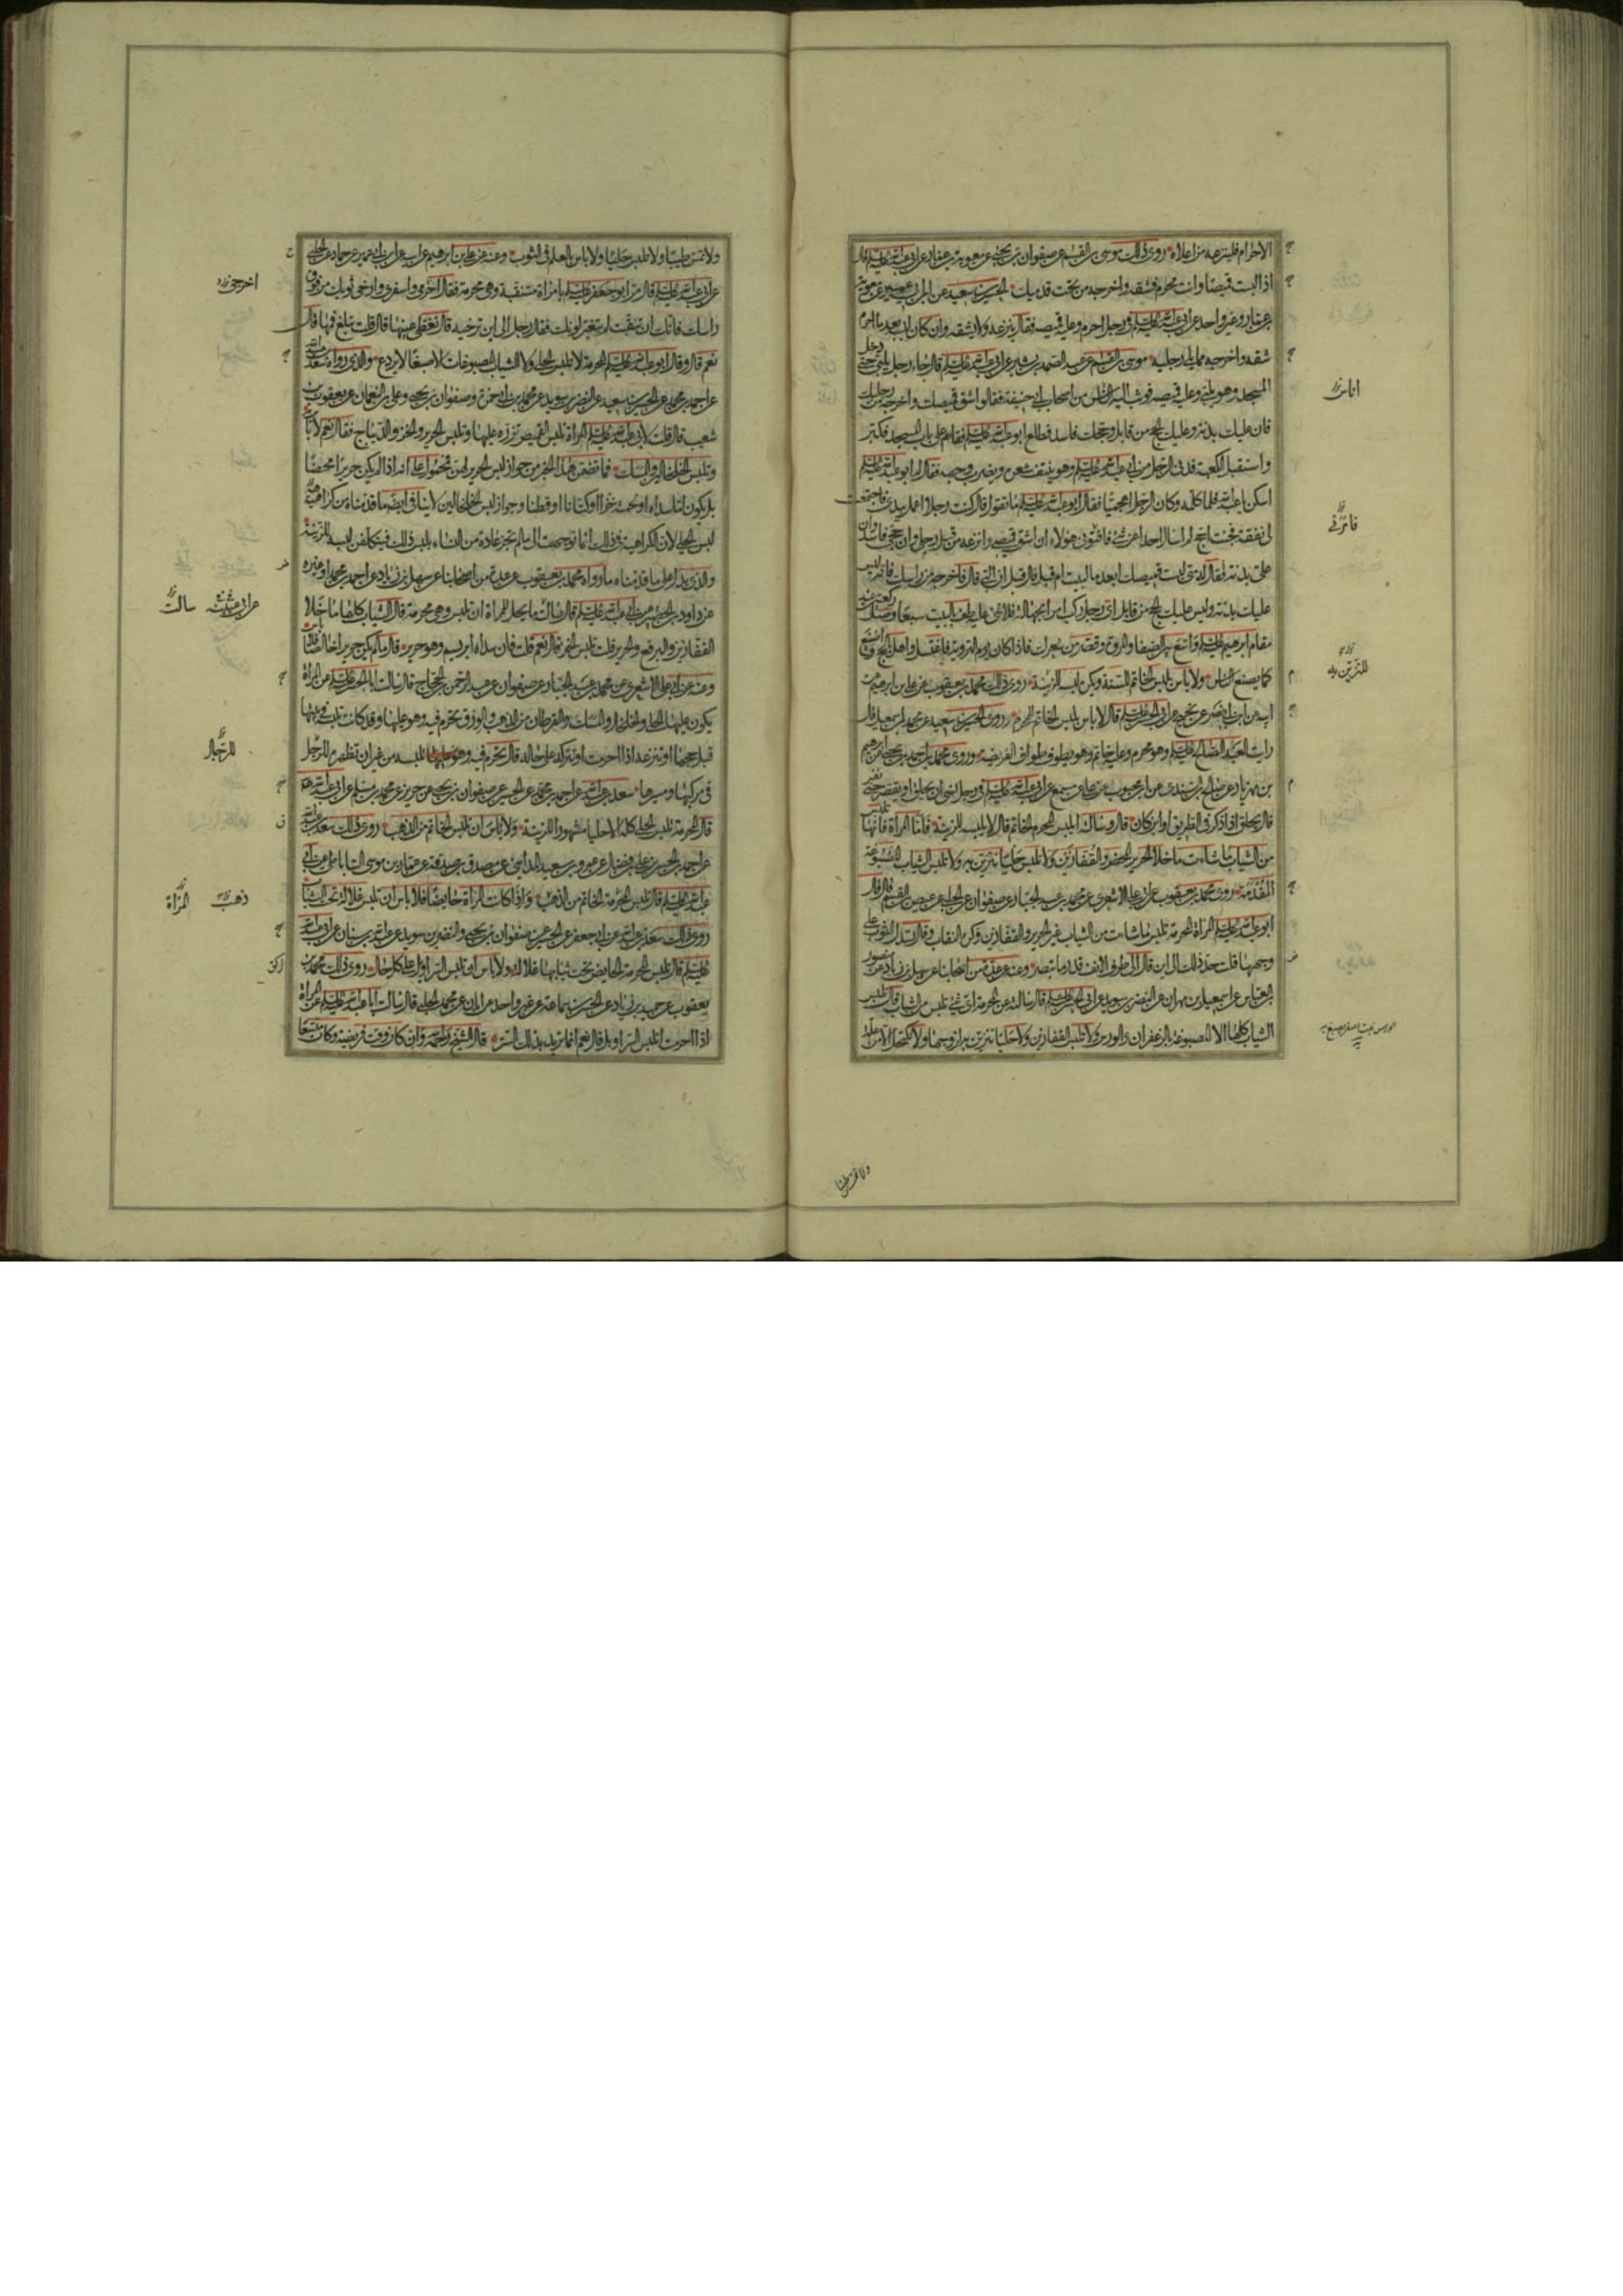 الاحرام فلينزعه من اعلاه روى ذلك موسى بن القسم عن صفوان بن يحيى عن معوية بن عمار عن ابى عبد الله عليه السلم قال
اذا لبست قميصا وانت محرم فشقه واخرجه من تحت قدميك الحسين بن سعيد عن ابن ابى عمير عن معوية
بن عمار وغير واحد عن ابى عبد الله عليه السلم فى رجل احرم وعليه قميصه فقال ينزعه ولا يشقه وان كان لبسه بعد ما احرم
شقه واخرجه مما يلى رجليه موسى بن القسم عن عبد الصمد بن بشير عن ابى عبد الله عليه السلم قال جاء رجل يلبى حتى دخل
المسجد وهو يلبى وعليه قميصه فوثب اليه الناس من اصحاب ابى حنيفة فقالوا شق قميصك واخرجه من رجليك
فان عليك بدنة وعليك الحج من قابل وحجك فاسد فطلع ابو عبد الله عليه السلم فقام على باب المسجد فكبر
واستقبل الكعبة فدنى الرجل من ابى عبد الله عليه السلم وهو ينتف شعره ويضرب وجهه فقال له ابو عبد الله عليه السلم
اسكن يا عبد الله فلما كلمه وكان الرجل اعجميا فقال ابو عبد الله عليه السلم ما تقول قال كنت رجلا اعمل بيدى فاجتمعت
لى نفقة فجئت احج لم اسال احدا عن شئ فافتونى هؤلاء ان اشق قميصى وانزعه من قبل رجلى وان حجى فاسد وان
على بدنة فقال له متى لبست قميصك ابعد ما لبيت ام قبل قال قبل ان البى قال فاخرجه من راسك فانه ليس
عليك بدنة وليس عليك الحج من قابل اى رجل ركب امرا بجهالة فلا شئ عليه طف بالبيت سبعا وصل ركعتين عند
مقام ابرهيم عليه السلم واسع بين الصفا والمروة وقصر من شعرك فاذا كان يوم التروية فاغتسل واهل بالحج واصنع
كما يصنع الناس ولا باس بلبس الخاتم للسنة ويكره لبسه للزينة روى ذلك محمد بن يعقوب عن على بن ابرهيم عن
ابيه عن ابن ابى نصر عن نجيح عن ابى الحسن عليه السلم قال لا باس بلبس الخاتم للمحرم وروى الحسين بن سعيد عن محمد بن اسمعيل قال
رايت العبد الصالح عليه السلم وهو محرم وعليه خاتم وهو يطوف طواف الفريضة وروى محمد بن احمد بن يحيى عن ابرهيم
بن مهزيار عن صالح بن السندى عن ابن محبوب عن على عن مسمع عن ابى عبد الله عليه السلم فى رجل نسى ان يحلق او يقصر حتى نفر
قال يحلق اذا ذكر فى الطريق او اين كان قال وسالته ايلبس المحرم الخاتم قال لا يلبسه للزينة فاما المراة فانها تلبس
من الثياب ما شاءت ما خلا الحرير المحض والقفازين ولا تلبس حليا تتزين به ولا تلبس الثياب المصبوغة
المفدمة روى محمد بن يعقوب عن ابى على الاشعرى عن محمد بن عبد الجبار عن صفوان عن الحلبى عن عيص بن القسم قال قال
ابو عبد الله عليه السلم المراة المحرمة تلبس ما شاءت من الثياب غير الحرير والقفازين وكره النقاب وقال تسدل الثوب على
وجهها قلت حد ذلك الى اين قال الى طرف الانف قدر ما تبصر وعنه عن عدة من اصحابنا عن سهل بن زياد عن منصور
بن العباس عن اسمعيل بن مهران عن النضر بن سويد عن ابى الحسن عليه السلم قال سالته عن المحرمة اى شئ تلبس من الثياب قال تلبس
الثياب كلها الا المصبوغة بالزعفران والورس ولا تلبس القفازين ولا حليا تتزين به لزوجها ولا تكتحل الا من علة
اناس
فامرونى
للتزين به
ولا تمس طيبا
ولا تمس طيبا ولا تلبس حليا ولا باس بالعلم فى الثوب وعنه عن على بن ابرهيم عن ابيه عن ابن ابى عمير عن حماد عن الحلبى
عن ابى عبد الله عليه السلم قال مر ابو جعفر عليه السلم بامراة متنقبة وهى محرمة فقال احرمى واسفرى وارخى ثوبك من فوق
راسك فانك ان تنقبت لم يتغير لونك فقال رجل الى اين ترخيه قال تغطى عينيها قال قلت تبلغ فمها قال
نعم قال وقال ابو عبد الله عليه السلم المحرمة لا تلبس الحلى ولا الثياب المصبوغات الا صبغا لا يردع والذى رواه سعد بن عبد الله
عن احمد بن محمد عن الحسين بن سعيد عن النضر بن سويد عن محمد بن ابى حمزة وصفوان بن يحيى وعلى بن النعمان عن يعقوب بن
شعيب قال قلت لابى عبد الله عليه السلم المراة تلبس القميص تزره عليها وتلبس الحرير والخز والديباج فقال نعم لا باس به
وتلبس الخلخالين والمسك فما تضمن هذا الخبر من جواز لبس الحرير لهن محمول على انه اذا لم يكن حريرا محضا
بل يكون اما سداه او لحمته خزا او كتانا او قطنا وجواز لبس الخلخالين لا ينافى ايضا ما قدمناه من كراهية
لبس الحلى لان الكراهية فى ذلك انما توجهت الى ما لم تجر عادة من النساء بلبس ذلك فيتكلفن لبسه للزينة
والذى يدل على ما قدمناه ما رواه محمد بن يعقوب عن عدة من اصحابنا عن سهل بن زياد عن احمد بن محمد او غيره
عن داود بن الحصين عن ابى عبد الله عليه السلم قال سالته ما يحل للمراة ان تلبس وهى محرمة قال الثياب كلها ما خلا
القفازين والبرقع والحرير قلت تلبس الخز قال نعم قلت فان سداه ابريسم وهو حرير قال ما لم يكن حريرا خالصا فلا باس
وعنه عن ابى على الاشعرى عن محمد بن عبد الجبار عن صفوان عن عبد الرحمن بن الحجاج قال سالت ابا الحسن عليه السلم عن المراة
يكون عليها الحلى والخلخال والمسك والقرطان من الذهب والورق تحرم فيه وهو عليها وقد كانت تلبسه فى بيتها
قبل حجها اتنزعه اذا احرمت او تتركه على حاله قال تحرم فيه وتلبسه من غير ان تظهره للرجل
فى مركبها ومسيرها سعد بن عبد الله عن احمد بن محمد عن الحسين عن صفوان بن يحيى عن حريز عن محمد بن مسلم عن ابى عبد الله
قال المحرمة تلبس الحلى كله الا حليا مشهورا للزينة ولا باس ان تلبس الخاتم من الذهب روى ذلك سعد بن عبد الله
عن احمد بن الحسن بن على بن فضال عن عمرو بن سعيد المدائنى عن مصدق بن صدقة عن عمار بن موسى الساباطى عن ابى
عبد الله عليه السلم قال تلبس المحرمة الخاتم من الذهب واذا كانت المراة حايضا فلا باس ان تلبس غلالة تحت الثياب
روى ذلك سعد بن عبد الله عن ابى جعفر عن الحسين عن صفوان بن يحيى والنضر بن سويد عن عبد الله بن سنان عن ابى عبد الله
عليه السلم قال تلبس المحرمة الحايض تحت ثيابها غلالة ولا باس ان تلبس السراويل على كل حال روى ذلك محمد بن
يعقوب عن حميد بن زياد عن الحسن بن سماعة عن غير واحد عن ابان عن محمد الحلبى قال سالت ابا عبد الله عليه السلم عن المراة
اذا احرمت اتلبس السراويل قال نعم انما تريد بذلك الستر قال الشيخ رحمه الله وان كان وقت فريضة وكان متسعا
للرجال
سالت
ذهب المراة